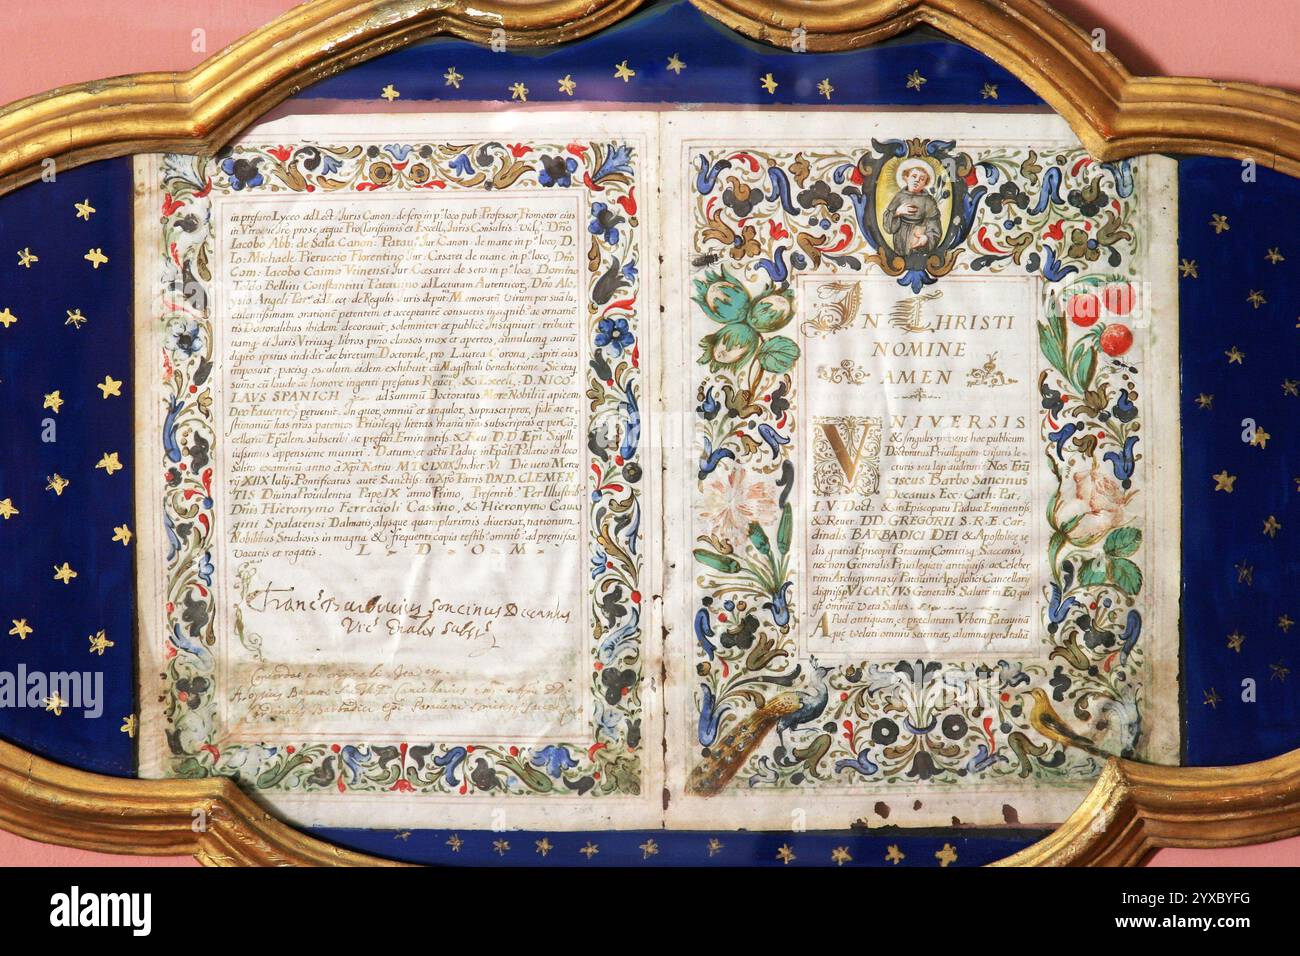 in prefato Lyceo ad Lect. Juris Canon: de sero in p.º loco pub. Professor, Promotor eius
in Vtroq; Jre, pro se, atque Pro Clarissimis et Excell. Juris Consultis. Vid. Dño
Iacobo Abb: de Sala Canon: Patau: Jur. Canon: de mane in p.º loco, D.
Io: Michaele Pieruccio Florentino Jur: Cæsarei de mane in p.º loco, Dño
Com: Iacobo Caimo Vtinensi Jur Cæsarei de sero in p.º loco, Domino
Toldo Bellini Constantini Patauino ad Lecturam Autenticor, Dño Aloy
sio Angeli Pat.º ad Lect. de Regulis Juris deput. Memoratũ Virum per sua lu
culentissimam orationẽ petentem et acceptante consuetis insignib. ac orname
tis Doctoralibus ibidem decorauit, solemniter et publicè Insigniuit: tribuit
namq; ei Juris Vtriusq. libros primo clausos mox et apertos, annulumq; aureũ
digito ipsius indidit ac biretum Doctorale, pro Laurea Corona, capiti eius
imposuit, pacisq. osculum eidem exhibuit cũ Magistrali benedictione. Sic itaq.
suma cũ laude ac honore ingenti prefatus Reuer. & Excell. D. NICO
LAVS SPANICH ad summũ Doctoratus More Nobiliũ apicem
Deo fauente, peruenit. In quor, omniũ et singulor, suprascriptor, fidẽ ac te
stimoniũ has nras patentes Priuilegij literas manu nra subscriptas et per Cã
cellariũ Epãlem subscribi ac prefati Eminentiss. & Reu. D.D. Epi Sigilli
iussimus appensione muniri. Datum et actũ Paduæ in Epãli Palatio in loco
Solito examinũ anno a Xpi Natiu MDCLXIX Indict. VI Die uero Mercu
rij XIIX Iulij Pontificatus autẽ Sanctiss. in Xpo Patris D.N.D. CLEMEN
TIS Diuina Prouidentia Papæ IX anno Primo, Presentib. Per Illustrib
Dñis Hieronymo Ferracioli Cassino, & Hieronymo Caua
gini Spalatensi Dalmata, alysque quamplurimis diuersar, nationum
Nobilibus Studiosis in magna & frequenti copia testib. omnib. ad premissa
Vacatis et rogatis. L D O M
Franc.s Barbuius Soncinus Decanus
Vic.s Gnalis Subss.
IN CHRISTI
NOMINE
AMEN
VNIVERSIS
& singulis presens hoc publicum
Doctoratus Priuilegium uisuris le
cturis seu legi audituris. Nos Frã
ciscus Barbo Soncinus
Decanus Ecc: Cath: Pat:
I. V. Doct: & in Episcopatu Paduæ Eminentiss
& Reuer. DD. GREGORII S.R.E. Car
dinalis BARBADICI DEI & Apostolicæ se
dis gratia Episcopi Patauini, Comitisq; Saccensis,
nec non Generalis Priuilegiati antiquiss. ac Celeber
rimi Archigymnasij Patauini Apostolici Cancellarij
digniss. VICARIVS Generalis Salutẽ in Eo qui
est omniũ Vera Salus.
Apud antiquam, et præclaram Vrbem Patauinã
quæ Veluti omniũ scientiar, alumna, per Italiã
alamy
Image ID: 2YXBYFG
www.alamy.com